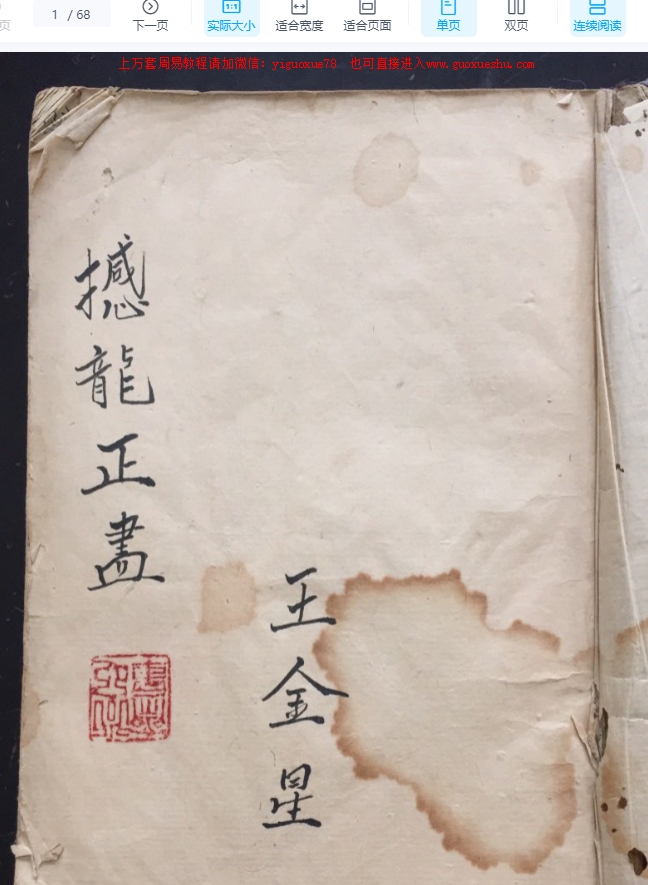 页
1 / 68
下一页
1:1
实际大小
适合宽度
适合页面
单页
双页
连续阅读
上万套周易教程请加微信：yiguoxue78 也可直接进入www.guoxueshu.com
撼龍正
王金星